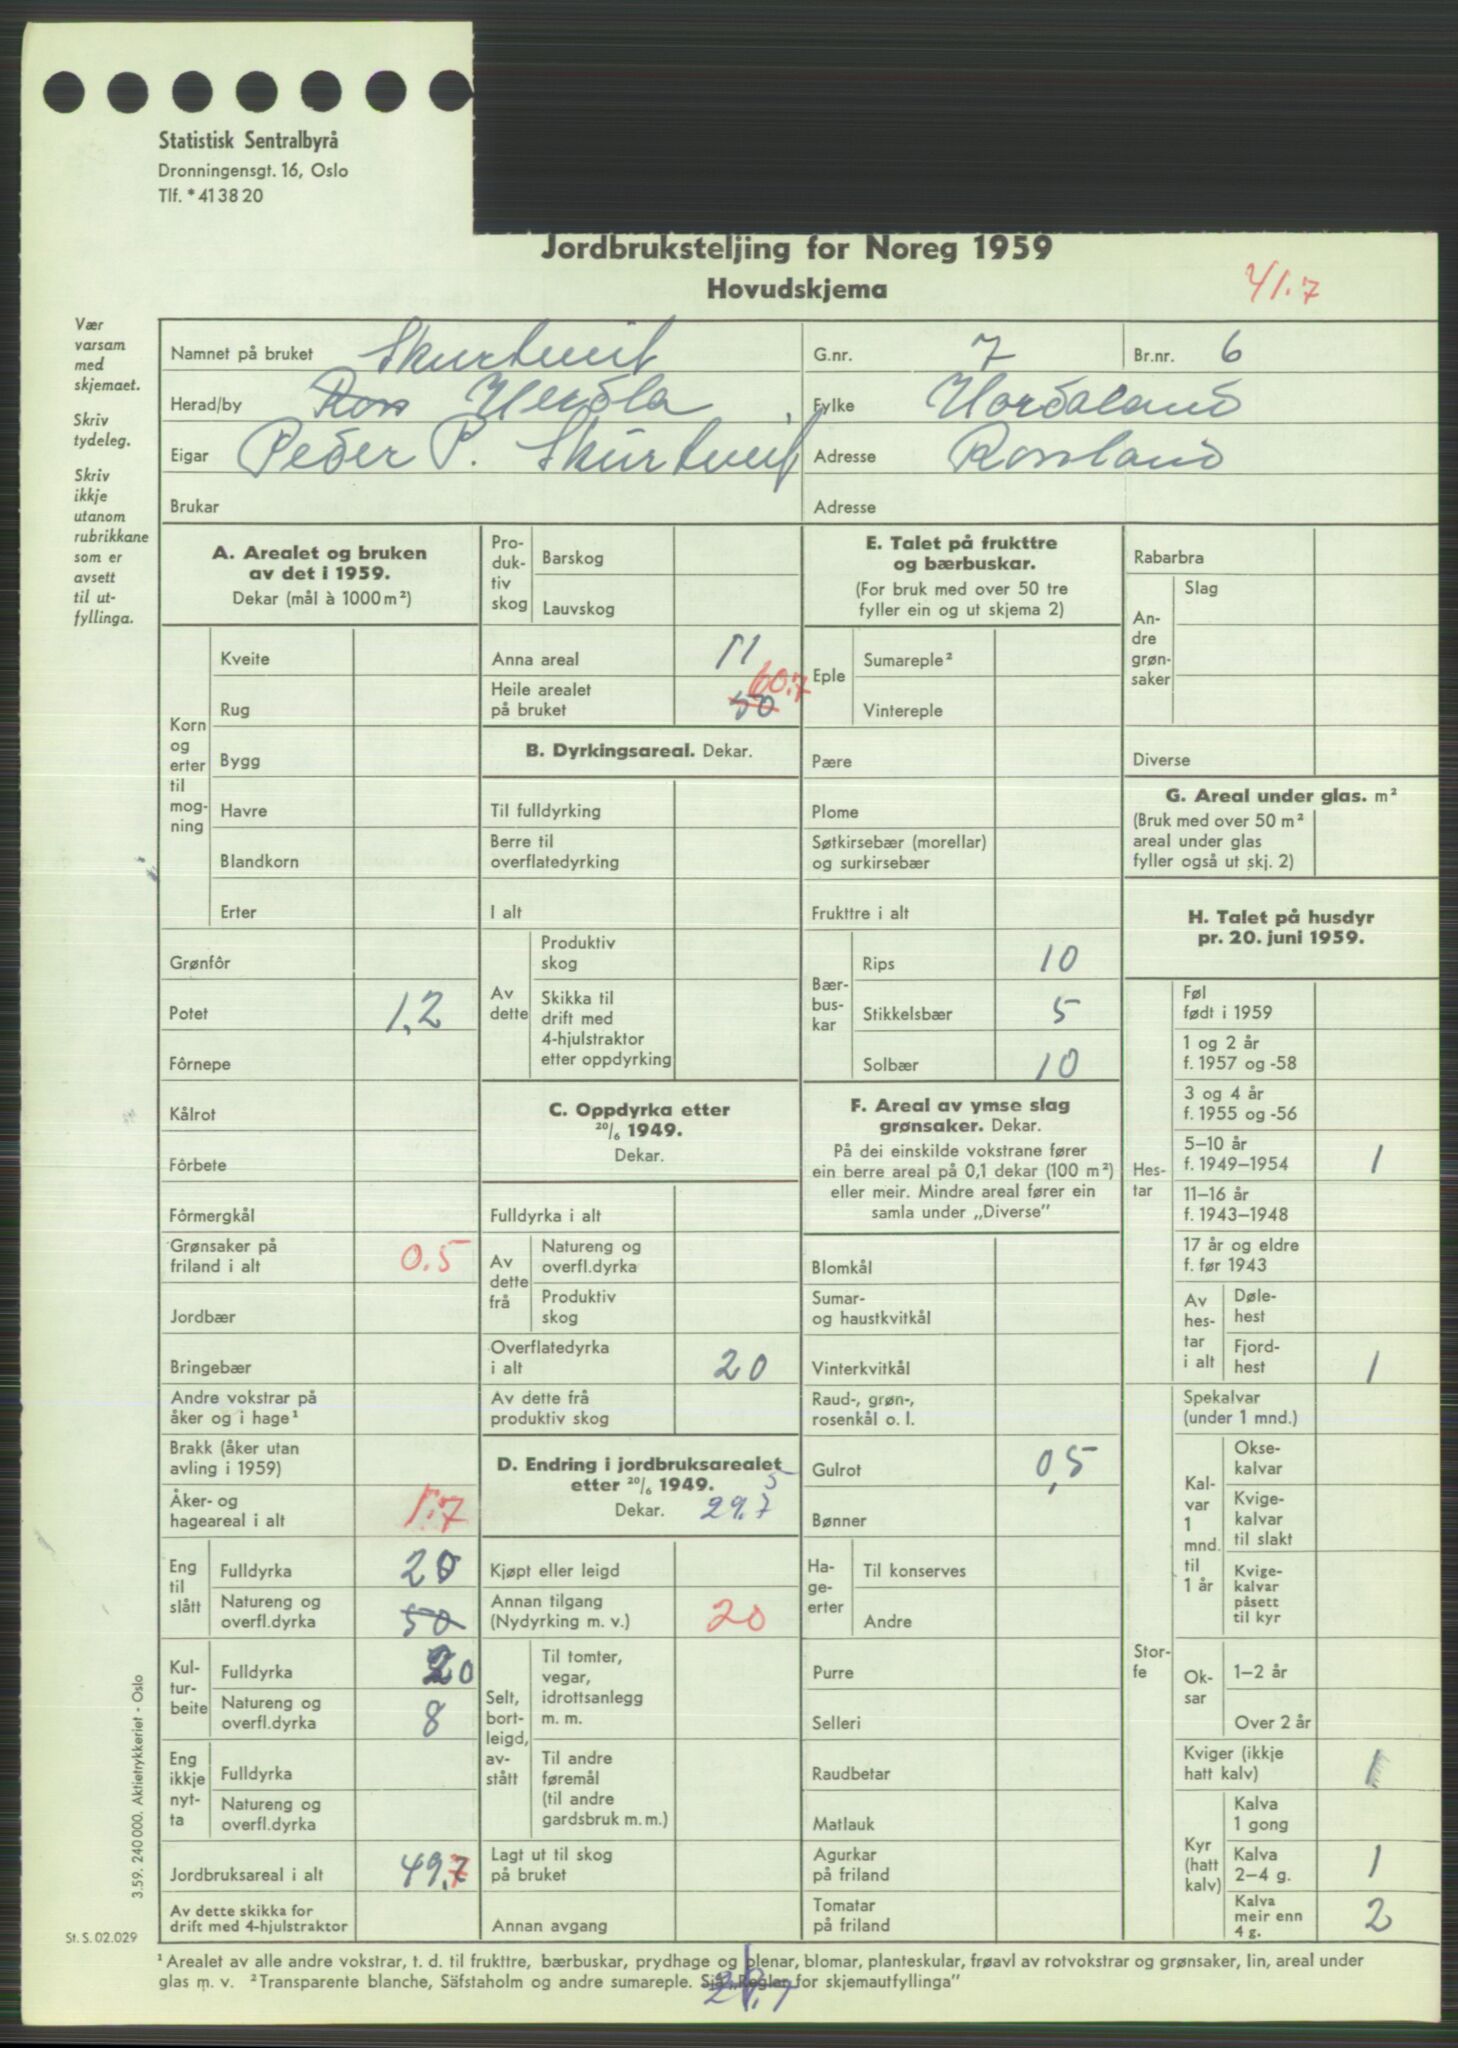 Statistisk Sentralbyrå
Dronningensgt. 16, Oslo
Tlf. *41 38 20
Jordbruksteljing for Noreg 1959
Hovudskjema
41.7
Vær
varsam
med
skjemaet.
Skriv
tydeleg.
Skriv
ikkje
utanom
rubrikkane
som er
avsett
til ut-
fyllinga.
Namnet på bruket Skurtveit G.nr. 7 Br.nr. 6
Herad/by Ross Herdla Fylke Hordaland
Eigar Peder P. Skurtveit Adresse Rossland
Brukar Adresse
A. Arealet og bruken
av det i 1959.
Dekar (mål à 1000 m²)
Korn
og
erter
til
mog-
ning
Kveite
Rug
Bygg
Havre
Blandkorn
Erter
Grønfôr
Potet 1,2
Fôrnepe
Kålrot
Fôrbete
Fôrmergkål
Grønsaker på
friland i alt 0.5
Jordbær
Bringebær
Andre vokstrar på
åker og i hage¹
Brakk (åker utan
avling i 1959)
Åker- og
hageareal i alt 1.7
Eng
til
slått
Fulldyrka 20
Natureng og
overfl.dyrka 50
Kul-
tur-
beite
Fulldyrka 20
Natureng og
overfl.dyrka 8
Eng
ikkje
nyt-
ta
Fulldyrka
Natureng og
overfl.dyrka
Jordbruksareal i alt 49,7
Av dette skikka for
drift med 4-hjulstraktor
Pro-
duk-
tiv
skog
Barskog
Lauvskog
Anna areal 11
Heile arealet
på bruket 50 60.7
B. Dyrkingsareal. Dekar.
Til fulldyrking
Berre til
overflatedyrking
I alt
Av
dette
Produktiv
skog
Skikka til
drift med
4-hjulstraktor
etter oppdyrking
C. Oppdyrka etter
20/6 1949.
Dekar.
Fulldyrka i alt
Av
dette
frå
Natureng og
overfl.dyrka
Produktiv
skog
Overflatedyrka
i alt 20
Av dette frå
produktiv skog
D. Endring i jordbruksarealet
etter 20/6 1949. 5
Dekar. 29,7
Kjøpt eller leigd
Annan tilgang
(Nydyrking m. v.) 20
Selt,
bort-
leigd,
av-
stått
Til tomter,
vegar,
idrottsanlegg
m. m.
Til andre
føremål
(til andre
gardsbruk m. m.)
Lagt ut til skog
på bruket
Annan avgang
E. Talet på frukttre
og bærbuskar.
(For bruk med over 50 tre
fyller ein og ut skjema 2)
Eple
Sumareple²
Vintereple
Pære
Plome
Søtkirsebær (morellar)
og surkirsebær
Frukttre i alt
Bær-
bus-
kar
Rips 10
Stikkelsbær 5
Solbær 10
F. Areal av ymse slag
grønsaker. Dekar.
På dei einskilde vokstrane fører
ein berre areal på 0,1 dekar (100 m²)
eller meir. Mindre areal fører ein
samla under „Diverse”
Blomkål
Sumar-
og haustkvitkål
Vinterkvitkål
Raud-, grøn-,
rosenkål o. l.
Gulrot 0,5
Bønner
Ha-
ge-
erter
Til konserves
Andre
Purre
Selleri
Raudbetar
Matlauk
Agurkar
på friland
Tomatar
på friland
Rabarbra
An-
dre
grøn-
saker
Slag
Diverse
G. Areal under glas. m²
(Bruk med over 50 m²
areal under glas
fyller også ut skj. 2)
H. Talet på husdyr
pr. 20. juni 1959.
Hes-
tar
Føl
født i 1959
1 og 2 år
f. 1957 og -58
3 og 4 år
f. 1955 og -56
5–10 år
f. 1949–1954 1
11–16 år
f. 1943–1948
17 år og eldre
f. før 1943
Av
hes-
tar
i alt
Døle-
hest
Fjord-
hest 1
Stor-
fe
Spekalvar
(under 1 mnd.)
Kal-
var
1
mnd.
til
1 år
Okse-
kalvar
Kvige-
kalvar
til slakt
Kvige-
kalvar
påsett
til kyr
Ok-
sar
1–2 år
Over 2 år
Kviger (ikkje
hatt kalv) 1
Kyr
(hatt
kalv)
Kalva
1 gong
Kalva
2–4 g. 1
Kalva
meir enn
4 g. 2
3.59. 240 000. Aktietrykkeriet - Oslo
St. S. 02.029
¹ Arealet av alle andre vokstrar, t. d. til frukttre, bærbuskar, prydhage og plenar, blomar, planteskular, frøavl av rotvokstrar og grønsaker, lin, areal under
glas m. v. ² Transparente blanche, Säfstaholm og andre sumareple. Sjå „Reglar for skjemautfyllinga”